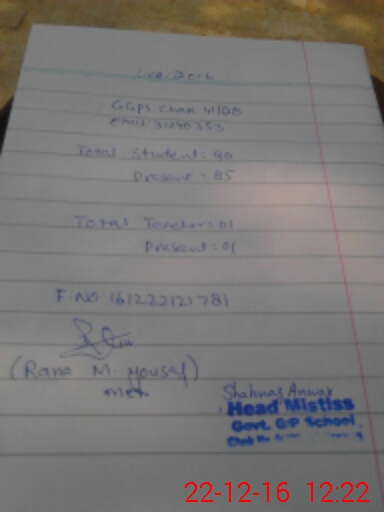 Dec. 2016
GGPS Chak 41/DB
emis: 31240353
Total Student: 90
Present: 85
Total Teacher: 01
Present: 01
F NO 161222121781
(Rana M. yousaf)
mea
Shahnaz Anwar
Head Mistiss
Govt. G/P School
22-12-16 12:22